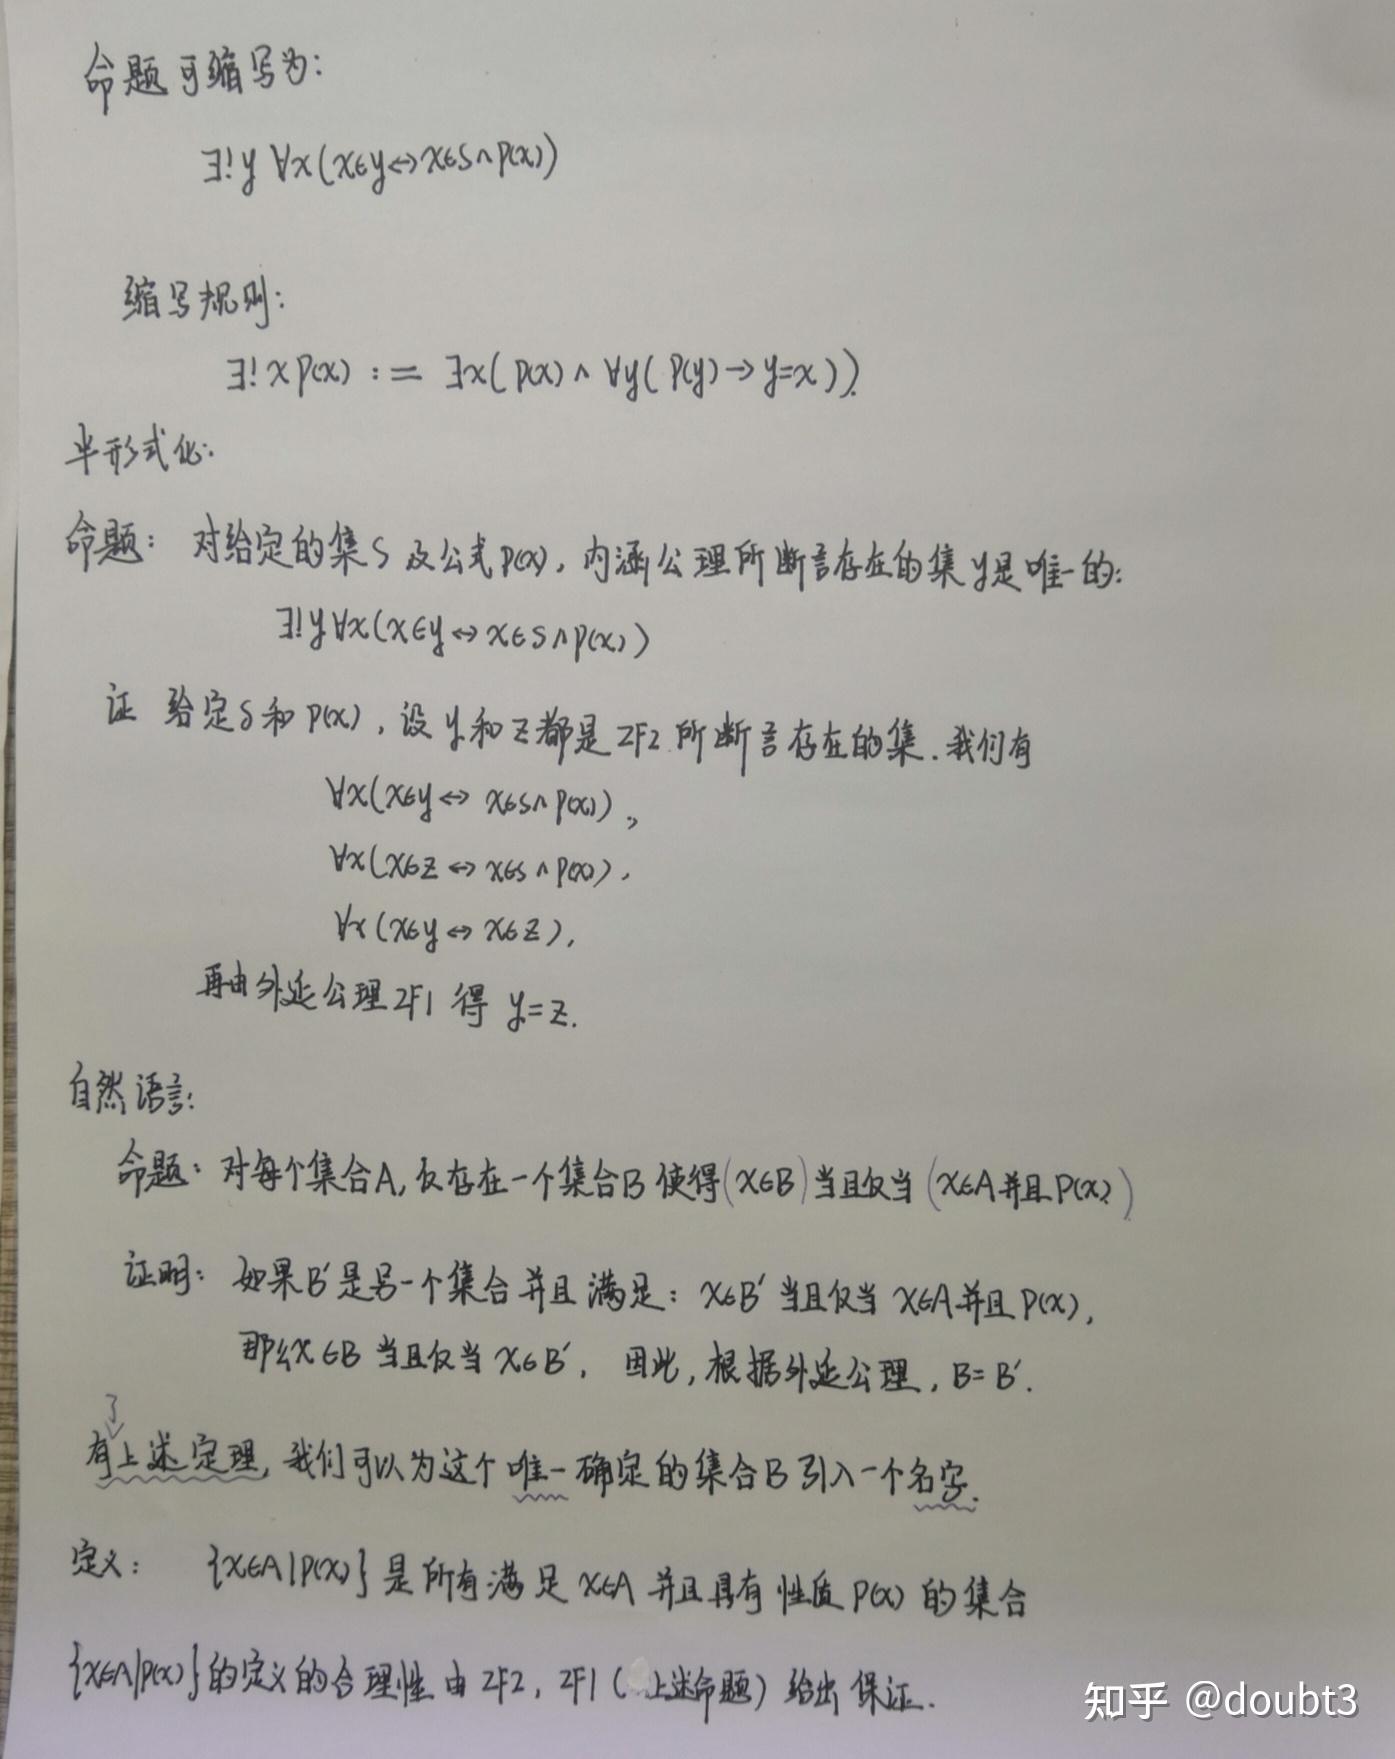 命题可缩写为:
∃!y ∀x(x∈y↔x∈S∧P(x))
缩写规则:
∃!xP(x) := ∃x(P(x)∧∀y(P(y)→y=x)).
半形式化:
命题: 对给定的集S及公式P(x), 内涵公理所断言存在的集y是唯一的:
∃!y∀x(x∈y↔x∈S∧P(x))
证 给定S和P(x), 设y和z都是ZF2所断言存在的集. 我们有
∀x(x∈y↔x∈S∧P(x)),
∀x(x∈z↔x∈S∧P(x)),
∀x(x∈y↔x∈z),
再由外延公理ZF1得 y=z.
自然语言:
命题: 对每个集合A, 仅存在一个集合B使得(x∈B)当且仅当(x∈A并且P(x))
证明: 如果B′是另一个集合并且满足: x∈B′当且仅当x∈A并且P(x),
那么x∈B当且仅当x∈B′, 因此, 根据外延公理, B=B′.
了
有上述定理, 我们可以为这个唯一确定的集合B引入一个名字.
定义: {x∈A|P(x)}是所有满足x∈A并且具有性质P(x)的集合
{x∈A|P(x)}的定义的合理性由ZF2, ZF1(上述命题)给出保证.
知乎 @doubt3